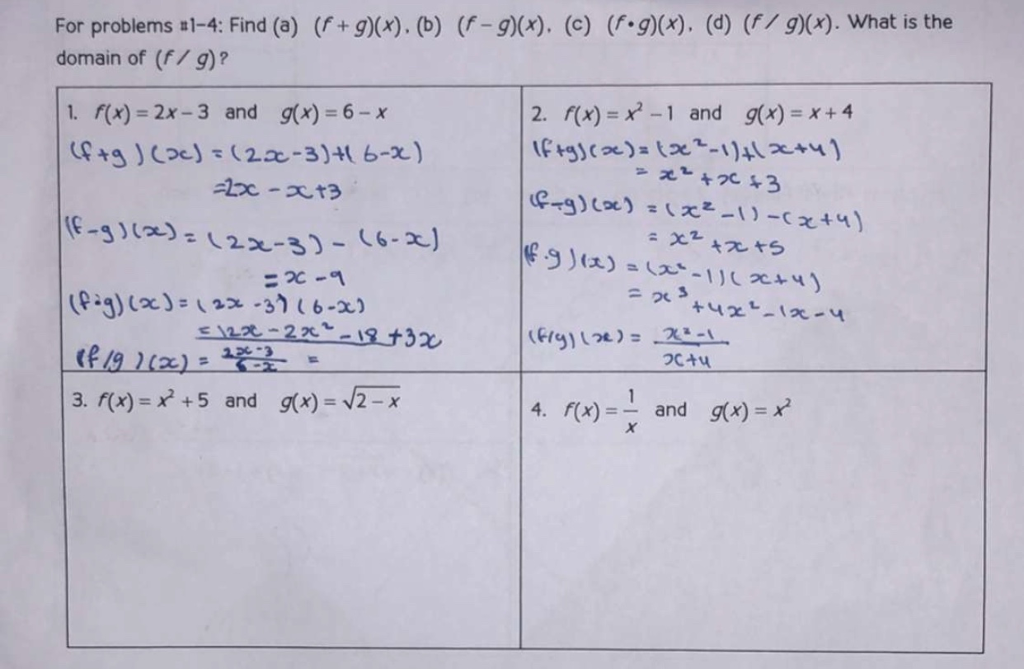 For problems #1-4: Find (a) (f + g)(x), (b) (f - g)(x), (c) (f•g)(x), (d) (f / g)(x). What is the
domain of (f / g)?
1. f(x) = 2x - 3 and g(x) = 6 - x
(f+g)(x) = (2x-3)+(6-x)
=2x - x+3
(f-g)(x) = (2x-3) - (6-x)
= x - 9
(f•g)(x) = (2x -3)(6-x)
= 12x - 2x² - 18 + 3x
(f/g)(x) = 2x-3/6-x =
2. f(x) = x² - 1 and g(x) = x + 4
(f+g)(x) = (x²-1)+(x+4)
= x² + x + 3
(f-g)(x) = (x² -1) - (x+4)
= x² + x + 5
(f.g)(x) = (x²-1)(x+4)
= x³ + 4x² - 1x - 4
(f/g)(x) = x²-1/x+4
3. f(x) = x² + 5 and g(x) = √2 - x
4. f(x) = 1/x and g(x) = x²